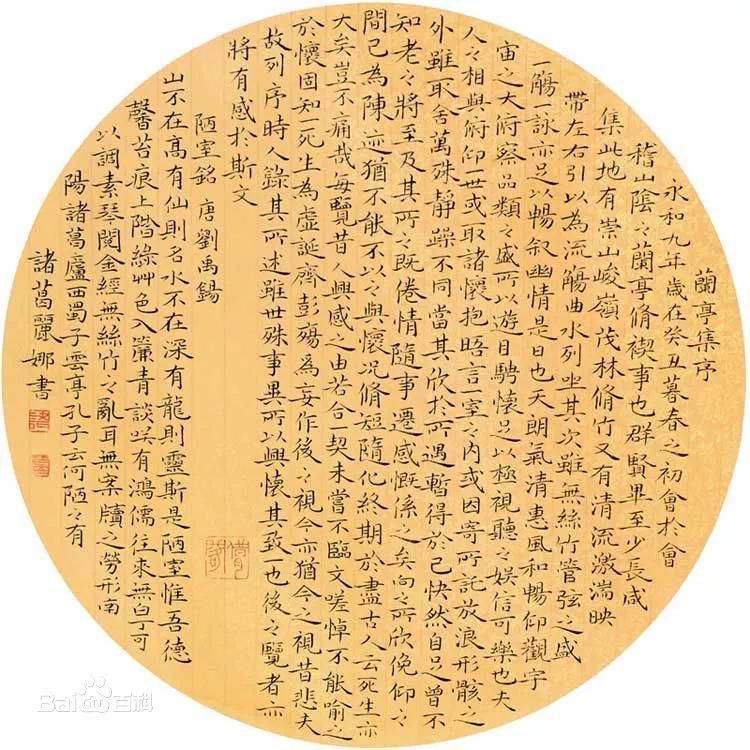 蘭亭集序
永和九年歲在癸丑暮春之初會於會
稽山陰之蘭亭脩禊事也群賢畢至少長咸
集此地有崇山峻嶺茂林脩竹又有清流激湍映
帶左右引以為流觴曲水列坐其次雖無絲竹管弦之盛
一觴一詠亦足以暢叙幽情是日也天朗氣清惠風和暢仰觀宇
宙之大俯察品類之盛所以遊目騁懷足以極視聽之娛信可樂也夫
人之相與俯仰一世或取諸懷抱晤言一室之內或因寄所託放浪形骸之
外雖取舍萬殊靜躁不同當其欣於所遇暫得於己快然自足曾不
知老之將至及其所之既倦情隨事遷感慨係之矣向之所欣俛仰之
間已為陳迹猶不能不以之興懷况脩短隨化終期於盡古人云死生亦
大矣豈不痛哉每覽昔人興感之由若合一契未嘗不臨文嗟悼不能喻之
於懷固知一死生為虛誕齊彭殤為妄作後之視今亦猶今之視昔悲夫
故列序時人錄其所述雖世殊事異所以興懷其致一也後之覽者亦
將有感於斯文
陋室銘 唐劉禹錫
山不在高有仙則名水不在深有龍則靈斯是陋室惟吾德
馨苔痕上階綠艸色入簾青談咲有鴻儒往來無白丁可
以調素琴閱金經無絲竹之亂耳無案牘之勞形南
陽諸葛廬西蜀子雲亭孔子云何陋之有
諸葛麗娜書
Baidu百科